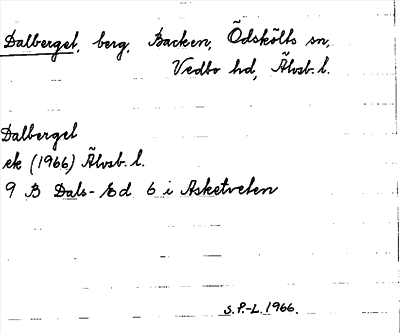 Dalberget, berg, Backen, Ödskölts sn,
Vedbo hd, Älvsb. l.
Dalberget
ek (1966) Älvsb. l.
9 B Dals-Ed 6 i Asketveten
S.P.-L. 1966.